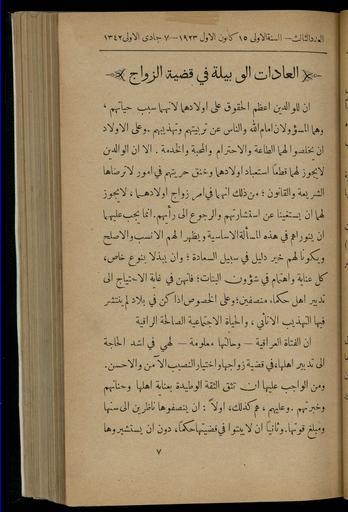 العدد الثالث — السنة الاولى ١٥ كانون الاول ١٩٢٣ — ٧ جمادى الاولى ١٣٤٢
العادات الوبيلة في قضية الزواج
ان للوالدين اعظم الحقوق على اولادهما لانهما سبب حياتهم ،
وهما المسؤولان امام الله والناس عن تربيتهم وتهذيبهم . وعلى الاولاد
ان يخلصوا لهما الطاعة والاحترام والمحبة والخدمة . الا ان الوالدين
لايجوز لهما قطعًا استعباد اولادهما وخنق حريتهم في امور لا ترضاها
الشريعة والقانون ؛ من ذلك انهما في امر زواج اولادهما ، لايجوز
لهما ان يستغنيا عن استشارتهم والرجوع الى رأيهم . انما يجب عليهما
ان ينوراهم في هذه المسألة الاساسية ويظهرا لهم الانسب والاصلح
ويكونا لهم خير دليل في سبيل السعادة ؛ وان يبذلا بنوع خاص ،
كل عناية واهتمام في شؤون البنات ؛ فانهن في غاية الاحتياج الى
تدبير اهل حكماء منصفين ؛ وعلى الخصوص اذا كن في بلاد لم ينتشر
فيها التهذيب الاناثي ، والحياة الاجتماعية الصالحة الراقية
ان الفتاة العراقية — وحالتها معلومة — لهي في اشد الحاجة
الى تدبير اهلها ، في قضية زواجها واختيار النصيب الآمن والاحسن .
ومن الواجب عليها ان تثق الثقة الوطيدة بعناية اهلها وحنانهم
وخبرتهم . وعليهم ، هم كذلك ، اولاً : ان ينصفوها ناظرين الى سنها
ومبلغ قوتها . وثانيًا ان لا يبتوا في قضيتها حكمًا ، دون ان يستشيروها
٧